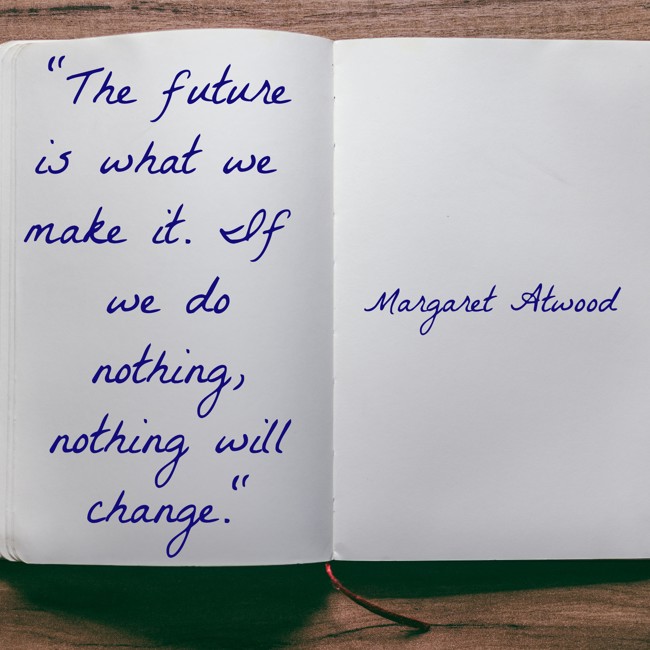 "The future
is what we
make it. If
we do
nothing,
nothing will
change."
Margaret Atwood